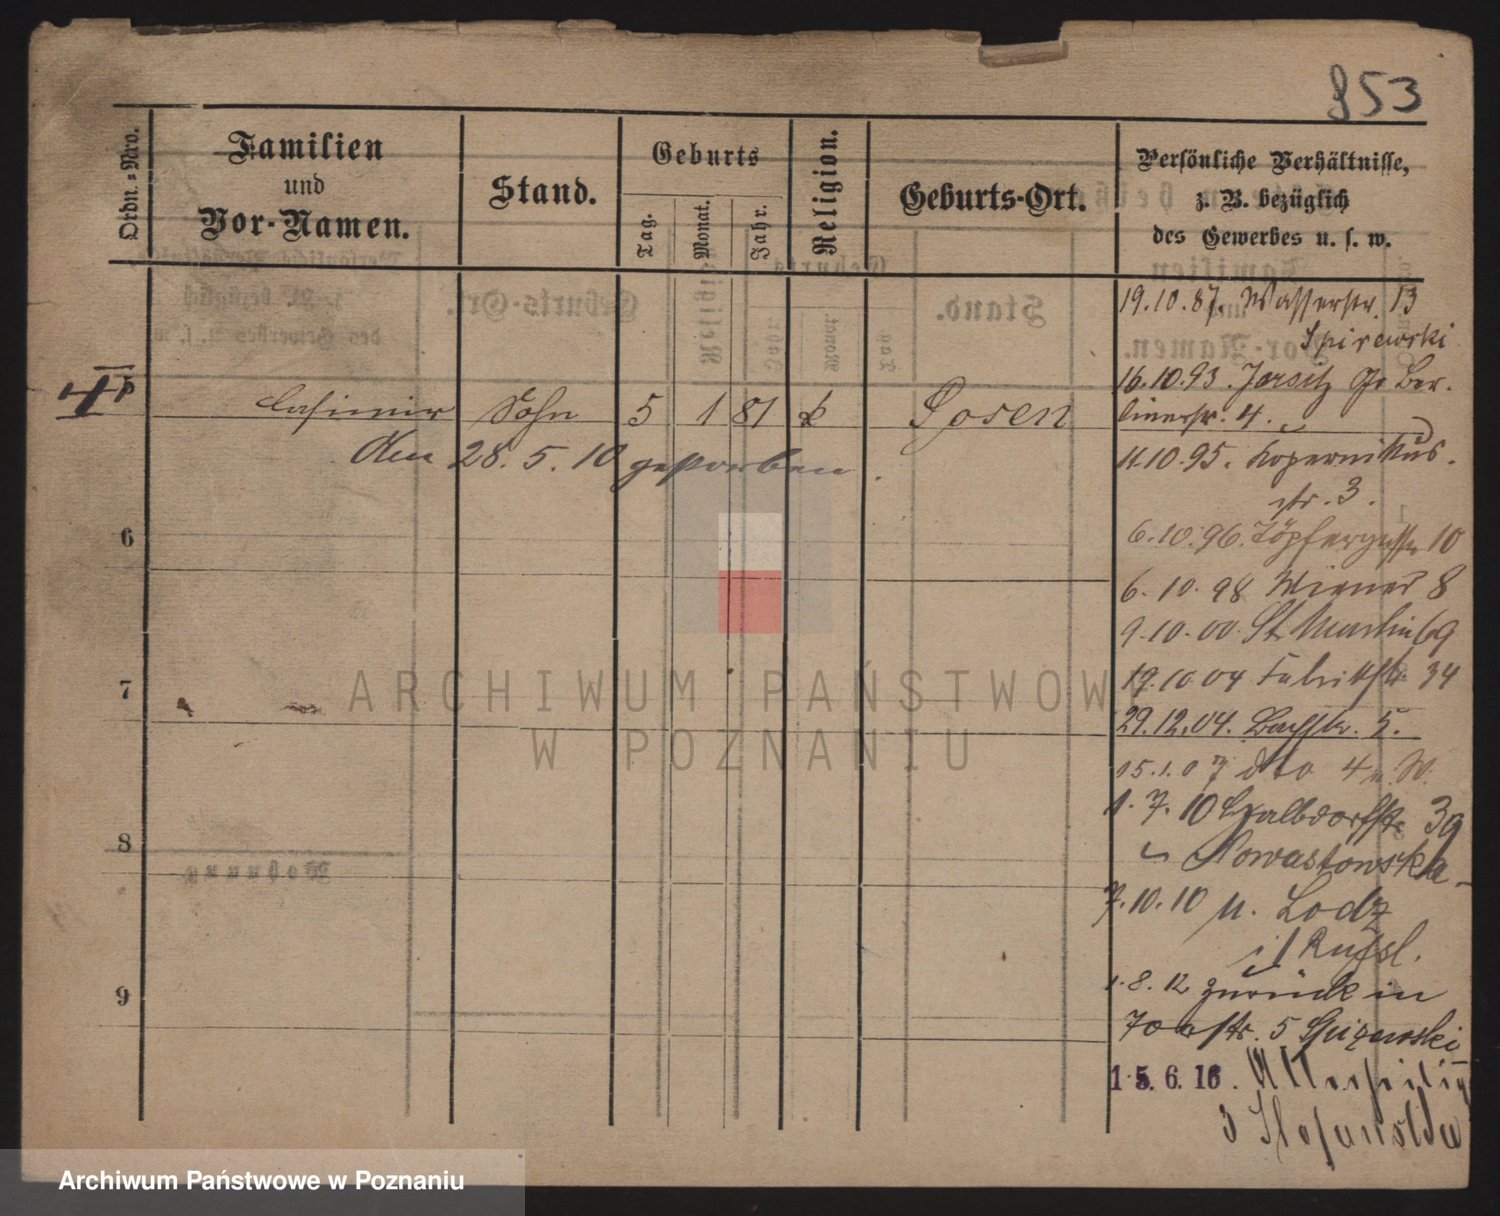 853
Ordn.-Nro.
Familien
und
Vor-Namen.
Stand.
Geburts
Tag.
Monat.
Jahr.
Religion.
Geburts-Ort.
Persönliche Verhältnisse,
z. B. bezüglich
des Gewerbes u. s. w.
19.10.87. Wasserstr. 13
16.10.93. Jersitz Gr Ber-
linerstr. 4.
Casimir Sohn 5 1 81 k Posen
den 28. 5. 10 gestorben.
4.10.95. Kopernikus-
str. 3.
6
6.10.96. Töpfergasse 10
6. 10. 98 Wiener 8
9.10.00. St Martin 69
7
19.10.04 34
29.12.04. Bachstr. 5.
15.1.07 dto 4 n. W.
1. 7. 10 39
8
7.10.10 u. Lodz
i/ Russl.
9
1.8.12 zurück in
5
15. 6. 16.
ARCHIWUM PAŃSTWOW
W POZNANIU
Archiwum Państwowe w Poznaniu